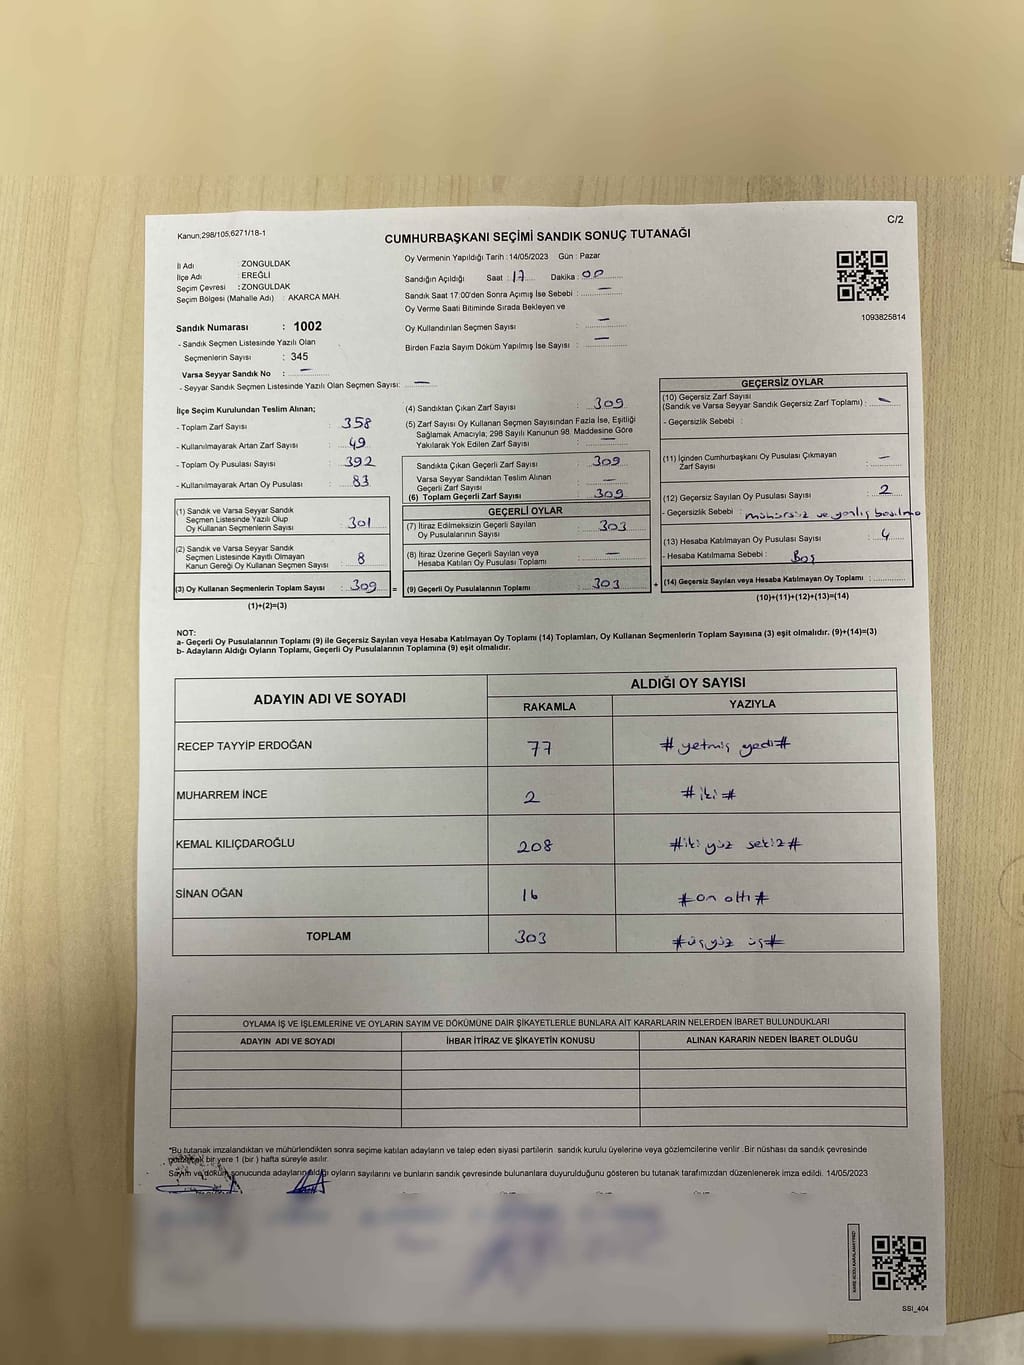 C/2
Kanun;298/105,6271/18-1
CUMHURBAŞKANI SEÇİMİ SANDIK SONUÇ TUTANAĞI
İl Adı : ZONGULDAK
İlçe Adı : EREĞLİ
Seçim Çevresi : ZONGULDAK
Seçim Bölgesi (Mahalle Adı) : AKARCA MAH.
Sandık Numarası : 1002
- Sandık Seçmen Listesinde Yazılı Olan
Seçmenlerin Sayısı : 345
Varsa Seyyar Sandık No : —
- Seyyar Sandık Seçmen Listesinde Yazılı Olan Seçmen Sayısı: —
Oy Vermenin Yapıldığı Tarih : 14/05/2023 Gün : Pazar
Sandığın Açıldığı Saat : 17 Dakika : 00
Sandık Saat 17:00'den Sonra Açımış İse Sebebi : —
Oy Verme Saati Bitiminde Sırada Bekleyen ve
Oy Kullandırılan Seçmen Sayısı : —
Birden Fazla Sayım Döküm Yapılmış İse Sayısı : —
1093825814
İlçe Seçim Kurulundan Teslim Alınan;
- Toplam Zarf Sayısı : 358
- Kullanılmayarak Artan Zarf Sayısı : 49
- Toplam Oy Pusulası Sayısı : 392
- Kullanılmayarak Artan Oy Pusulası : 83
(1) Sandık ve Varsa Seyyar Sandık
Seçmen Listesinde Yazılı Olup
Oy Kullanan Seçmenlerin Sayısı : 301
(2) Sandık ve Varsa Seyyar Sandık
Seçmen Listesinde Kayıtlı Olmayan
Kanun Gereği Oy Kullanan Seçmen Sayısı : 8
(3) Oy Kullanan Seçmenlerin Toplam Sayısı : 309 =
(1)+(2)=(3)
(4) Sandıktan Çıkan Zarf Sayısı : 309
(5) Zarf Sayısı Oy Kullanan Seçmen Sayısından Fazla İse, Eşitliği
Sağlamak Amacıyla; 298 Sayılı Kanunun 98. Maddesine Göre
Yakılarak Yok Edilen Zarf Sayısı : —
Sandıkta Çıkan Geçerli Zarf Sayısı : 309
Varsa Seyyar Sandıktan Teslim Alınan
Geçerli Zarf Sayısı : —
(6) Toplam Geçerli Zarf Sayısı : 309
GEÇERLİ OYLAR
(7) İtiraz Edilmeksizin Geçerli Sayılan
Oy Pusulalarının Toplamı : 303
(8) İtiraz Üzerine Geçerli Sayılan veya
Hesaba Katılan Oy Pusulası Toplamı : —
(9) Geçerli Oy Pusulalarının Toplamı : 303 +
GEÇERSİZ OYLAR
(10) Geçersiz Zarf Sayısı
(Sandık ve Varsa Seyyar Sandık Geçersiz Zarf Toplamı) : —
- Geçersizlik Sebebi :
(11) İçinden Cumhurbaşkanı Oy Pusulası Çıkmayan
Zarf Sayısı : —
(12) Geçersiz Sayılan Oy Pusulası Sayısı : 2
- Geçersizlik Sebebi : mühürsüz ve yanlış basılmo
(13) Hesaba Katılmayan Oy Pusulası Sayısı : 4
- Hesaba Katılmama Sebebi : Boş
(14) Geçersiz Sayılan veya Hesaba Katılmayan Oy Toplamı :
(10)+(11)+(12)+(13)=(14)
NOT:
a- Geçerli Oy Pusulalarının Toplamı (9) ile Geçersiz Sayılan veya Hesaba Katılmayan Oy Toplamı (14) Toplamları, Oy Kullanan Seçmenlerin Toplam Sayısına (3) eşit olmalıdır. (9)+(14)=(3)
b- Adayların Aldığı Oyların Toplamı, Geçerli Oy Pusulalarının Toplamına (9) eşit olmalıdır.
ADAYIN ADI VE SOYADI
ALDIĞI OY SAYISI
RAKAMLA YAZIYLA
RECEP TAYYİP ERDOĞAN 77 #yetmiş yedi#
MUHARREM İNCE 2 #iki#
KEMAL KILIÇDAROĞLU 208 #iki yüz sekiz#
SİNAN OĞAN 16 #on altı#
TOPLAM 303 #üçyüz üç#
OYLAMA İŞ VE İŞLEMLERİNE VE OYLARIN SAYIM VE DÖKÜMÜNE DAİR ŞİKAYETLERLE BUNLARA AİT KARARLARIN NELERDEN İBARET BULUNDUKLARI
ADAYIN ADI VE SOYADI İHBAR İTİRAZ VE ŞİKAYETİN KONUSU ALINAN KARARIN NEDEN İBARET OLDUĞU
*Bu tutanak imzalandıktan ve mühürlendikten sonra seçime katılan adayların ve talep eden siyasi partilerin sandık kurulu üyelerine veya gözlemcilerine verilir .Bir nüshası da sandık çevresinde
bir yere 1 (bir ) hafta süreyle asılır.
Sayım ve döküm sonucunda adayların aldığı oyların sayılarını ve bunların sandık çevresinde bulunanlara duyurulduğunu gösteren bu tutanak tarafımızdan düzenlenerek imza edildi. 14/05/2023
SSI_404